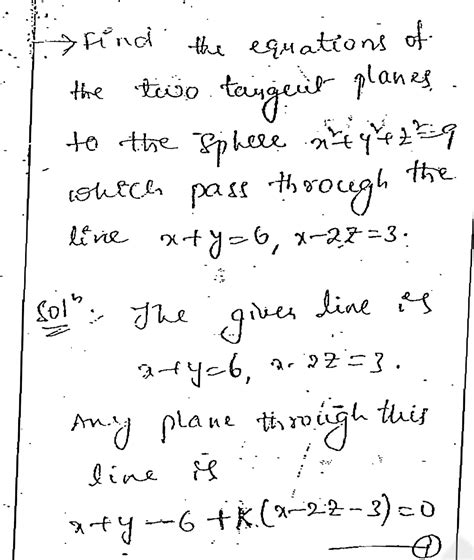 → Find the equations of
the two tangent planes
to the sphere x²+y²+z²=9
which pass through the
line x+y=6, x-2z=3.
Solⁿ:- The given line is
x+y=6, x-2z=3.
Any plane through this
line is
x+y-6+K(x-2z-3)=0
—①